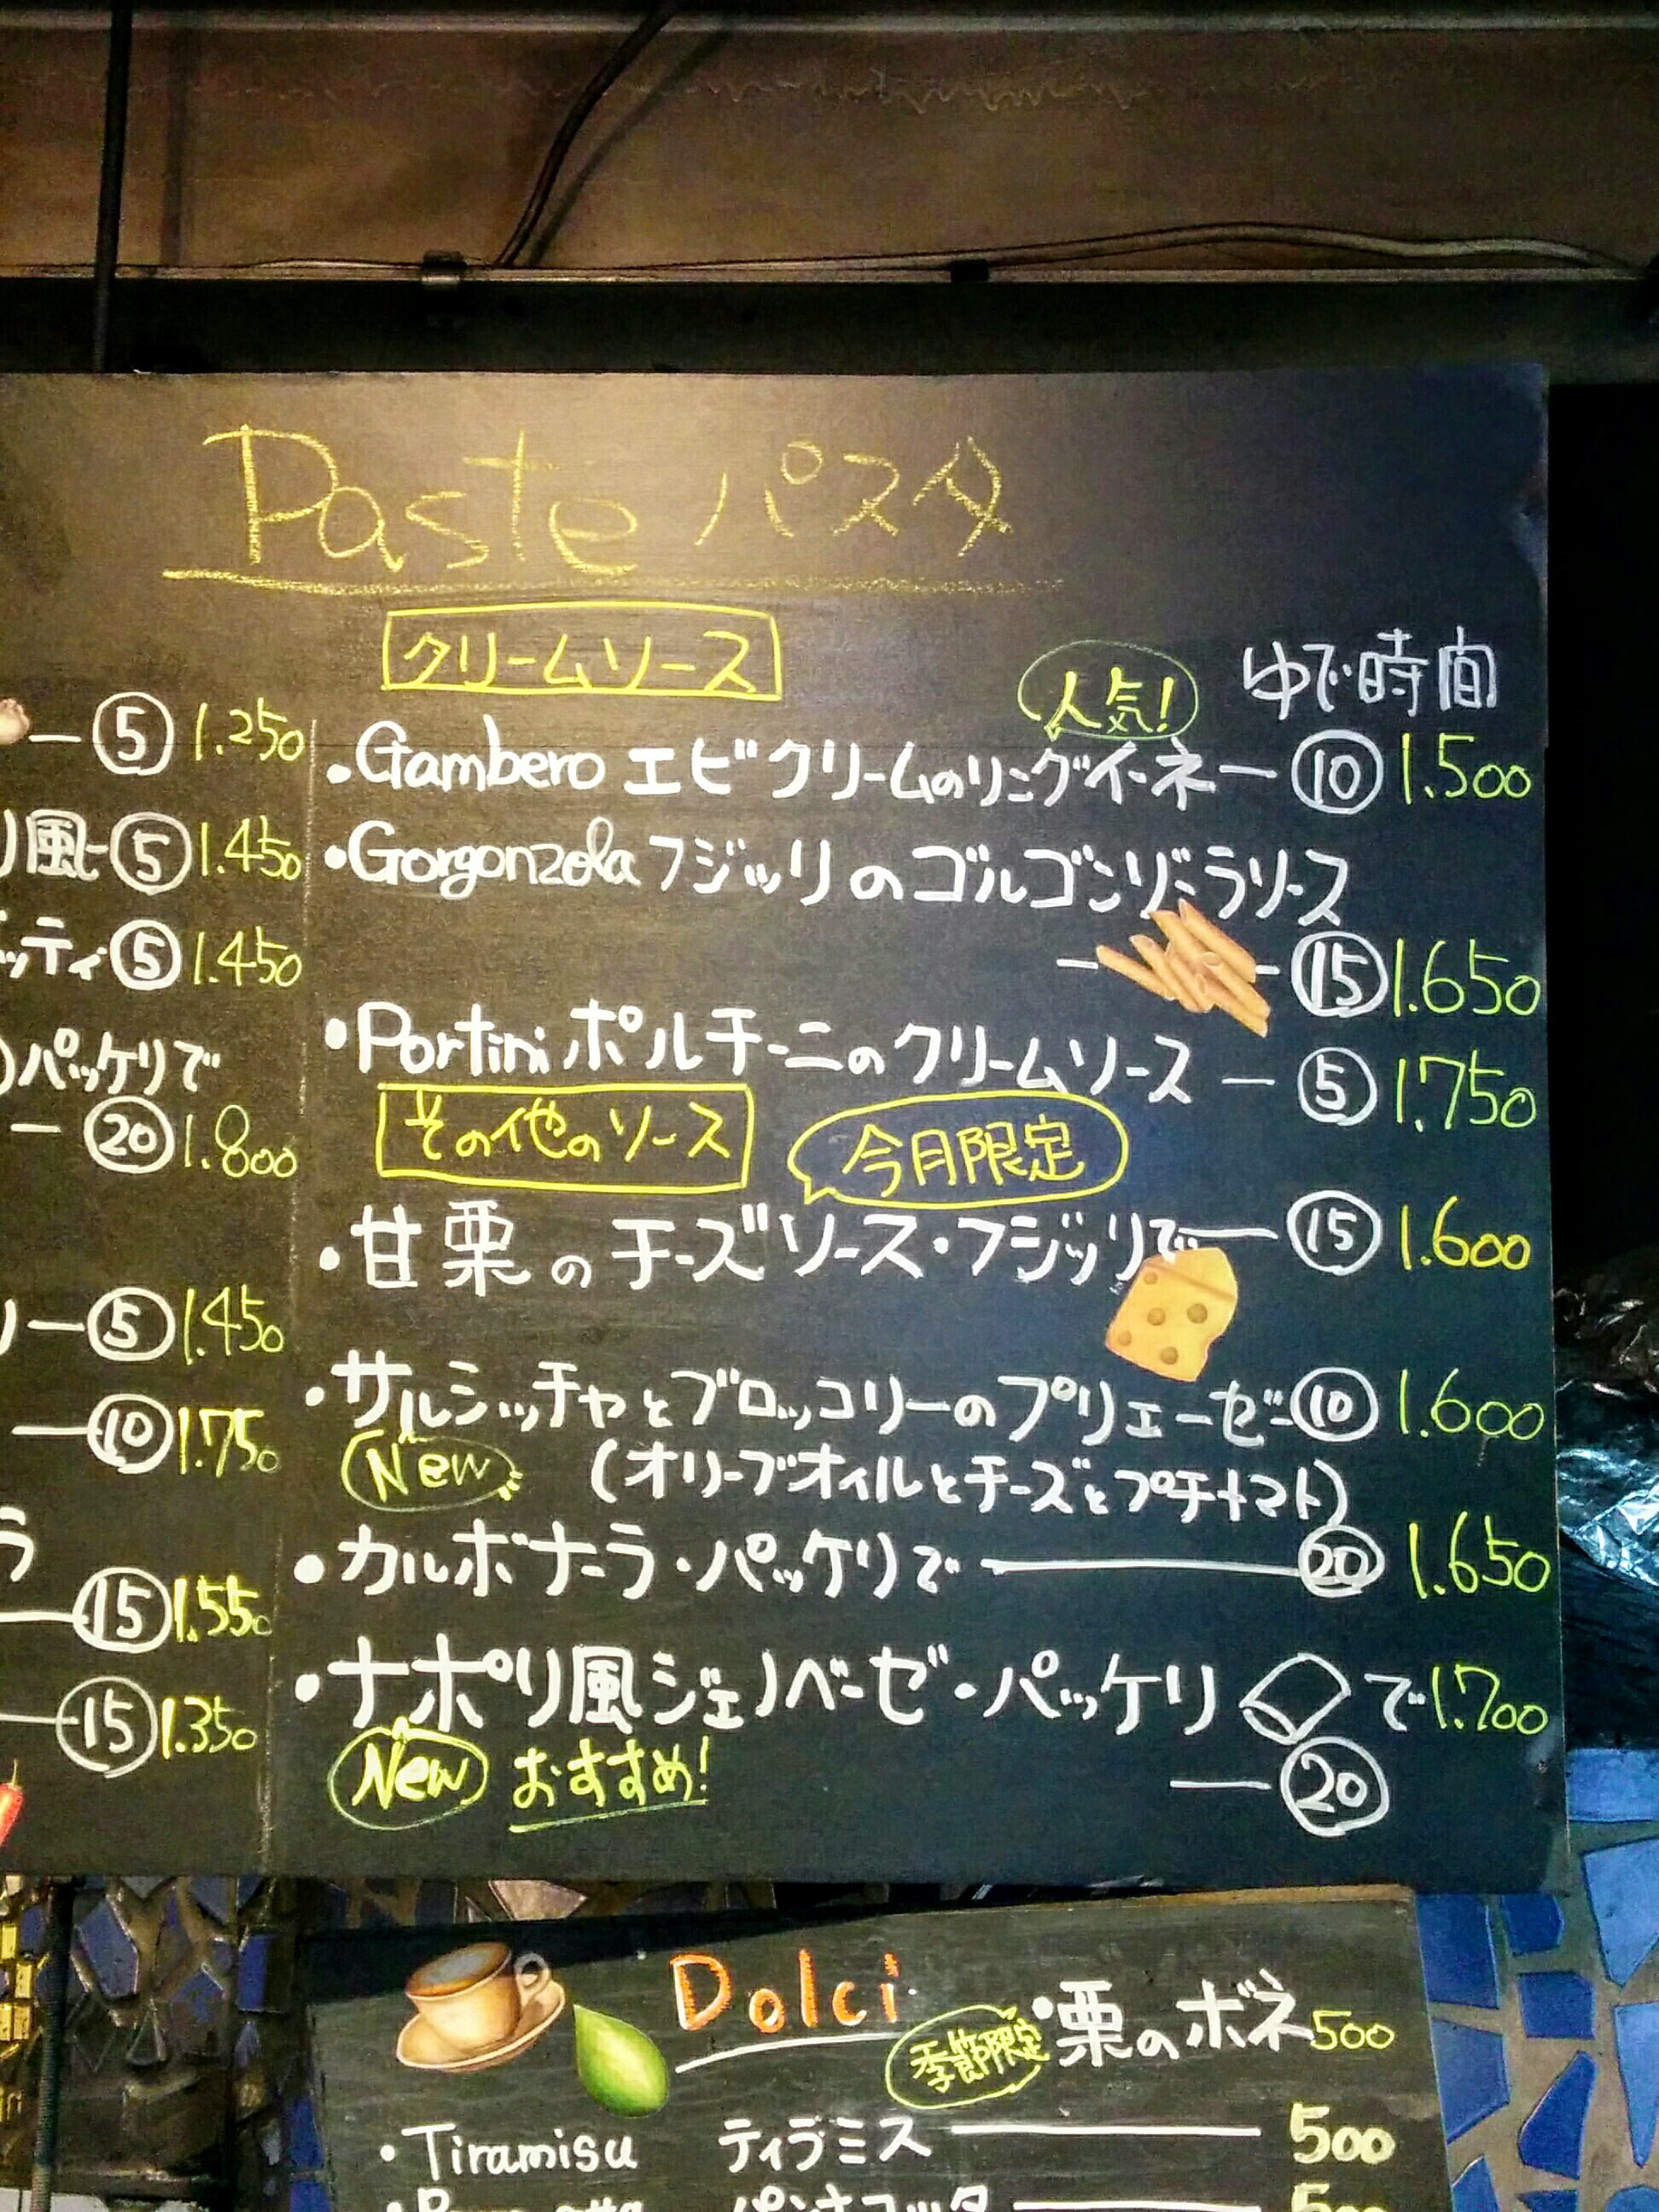 Paste パスタ
クリームソース
人気!
ゆで時間
⑤ 1.250
・Gambero エビクリームのリングイーネー ⑩ 1.500
リ風-⑤ 1.450
・Gorgonzola フジッリのゴルゴンゾーラソース
ッティ ⑤ 1.450
⑮ 1.650
パッケリで
・Portini ポルチーニのクリームソース - ⑤ 1.750
- ⑳ 1.800
その他のソース
今月限定
・甘栗のチーズソース・フジッリで— ⑮ 1.600
リ—⑤ 1.450
・サルシッチャとブロッコリーのプリエーゼ-⑩ 1.600
—⑩ 1.750
New
(オリーブオイルとチーズとプチトマト)
ラ
・カルボナーラ・パッケリで —⑳ 1.650
—⑮ 1.550
・ナポリ風ジェノベーゼ・パッケリ で 1.700
—⑮ 1.350
New おすすめ!
— ⑳
Dolci
季節限定
・栗のボネ 500
・Tiramisu ティラミス — 500